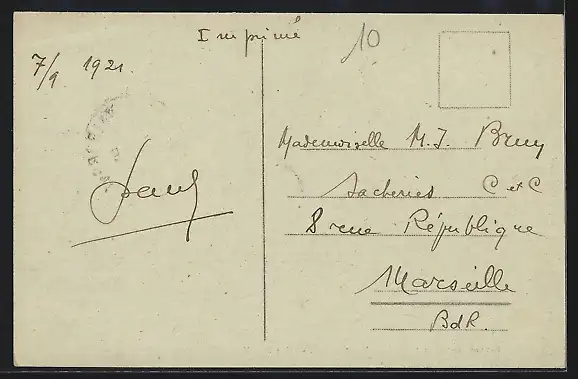 Imprimé
10
7/9 1921
Mademoiselle M. J. Bruny
Sacheries C et C
8 rue République
Marseille
BdR.